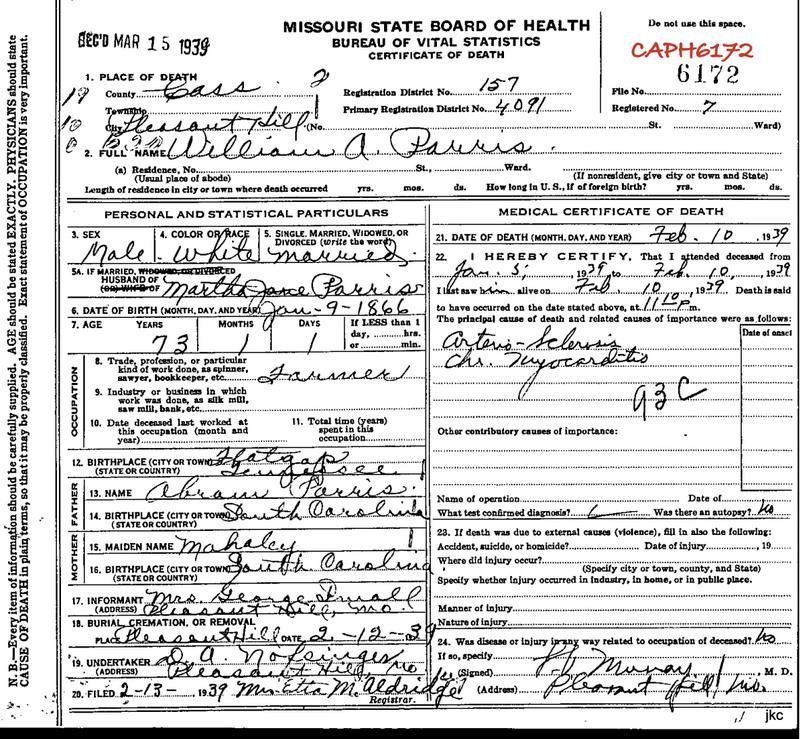 REC'D MAR 15 1939
MISSOURI STATE BOARD OF HEALTH
BUREAU OF VITAL STATISTICS
CERTIFICATE OF DEATH
Do not use this space.
CAPH6172
6172
1. PLACE OF DEATH
County Cass 2
Registration District No. 157
File No.
Township
Primary Registration District No. 4091
Registered No. 7
City Pleasant Hill (No. St. Ward)
2. FULL NAME William A. Parris.
(a) Residence, No. St., Ward.
(Usual place of abode) (If nonresident, give city or town and State)
Length of residence in city or town where death occurred yrs. mos. ds. How long in U. S., if of foreign birth? yrs. mos. ds.
PERSONAL AND STATISTICAL PARTICULARS
3. SEX Male
4. COLOR OR RACE White
5. SINGLE, MARRIED, WIDOWED, OR DIVORCED (write the word) Married
5A. IF MARRIED, WIDOWED, OR DIVORCED
HUSBAND OF
(OR) WIFE OF Martha Jane Parris
6. DATE OF BIRTH (MONTH, DAY, AND YEAR) Jan-9-1866
7. AGE YEARS MONTHS DAYS If LESS than 1
day, hrs.
or min.
73 1 1
OCCUPATION
8. Trade, profession, or particular
kind of work done, as spinner,
sawyer, bookkeeper, etc. Farmer
9. Industry or business in which
work was done, as silk mill,
saw mill, bank, etc.
10. Date deceased last worked at
this occupation (month and
year)
11. Total time (years)
spent in this
occupation
12. BIRTHPLACE (CITY OR TOWN) Flatgap
(STATE OR COUNTRY) Tennessee
FATHER
13. NAME Abram Parris
14. BIRTHPLACE (CITY OR TOWN) South Carolina
(STATE OR COUNTRY)
MOTHER
15. MAIDEN NAME Mahaley
16. BIRTHPLACE (CITY OR TOWN) South Carolina
(STATE OR COUNTRY)
17. INFORMANT Mrs. George Small
(ADDRESS) Pleasant Hill, Mo.
18. BURIAL, CREMATION, OR REMOVAL
PLACE Pleasant Hill DATE 2-12-39
19. UNDERTAKER D. A. Nofsinger
(ADDRESS) Pleasant Hill, Mo
20. FILED 2-13- 1939 Mrs Etta M. Aldridge
Registrar.
MEDICAL CERTIFICATE OF DEATH
21. DATE OF DEATH (MONTH, DAY, AND YEAR) Feb. 10, 1939
22. I HEREBY CERTIFY, That I attended deceased from
Jan. 5, 1939, to Feb. 10, 1939
I last saw him alive on Feb 10, 1939. Death is said
to have occurred on the date stated above, at 11 10 P m.
The principal cause of death and related causes of importance were as follows:
Date of onset
Arterio-Sclerosis
Chr. Myocarditis
93C
Other contributory causes of importance:
Name of operation Date of
What test confirmed diagnosis? Was there an autopsy? No
23. If death was due to external causes (violence), fill in also the following:
Accident, suicide, or homicide? Date of injury , 19
Where did injury occur?
(Specify city or town, county, and State)
Specify whether injury occurred in industry, in home, or in public place.
Manner of injury
Nature of injury
24. Was disease or injury in any way related to occupation of deceased? No
If so, specify
(Signed) Murray, M. D.
(Address) Pleasant Hill, Mo.
jkc
N. B.—Every item of information should be carefully supplied. AGE should be stated EXACTLY. PHYSICIANS should state
CAUSE OF DEATH in plain terms, so that it may be properly classified. Exact statement of OCCUPATION is very important.